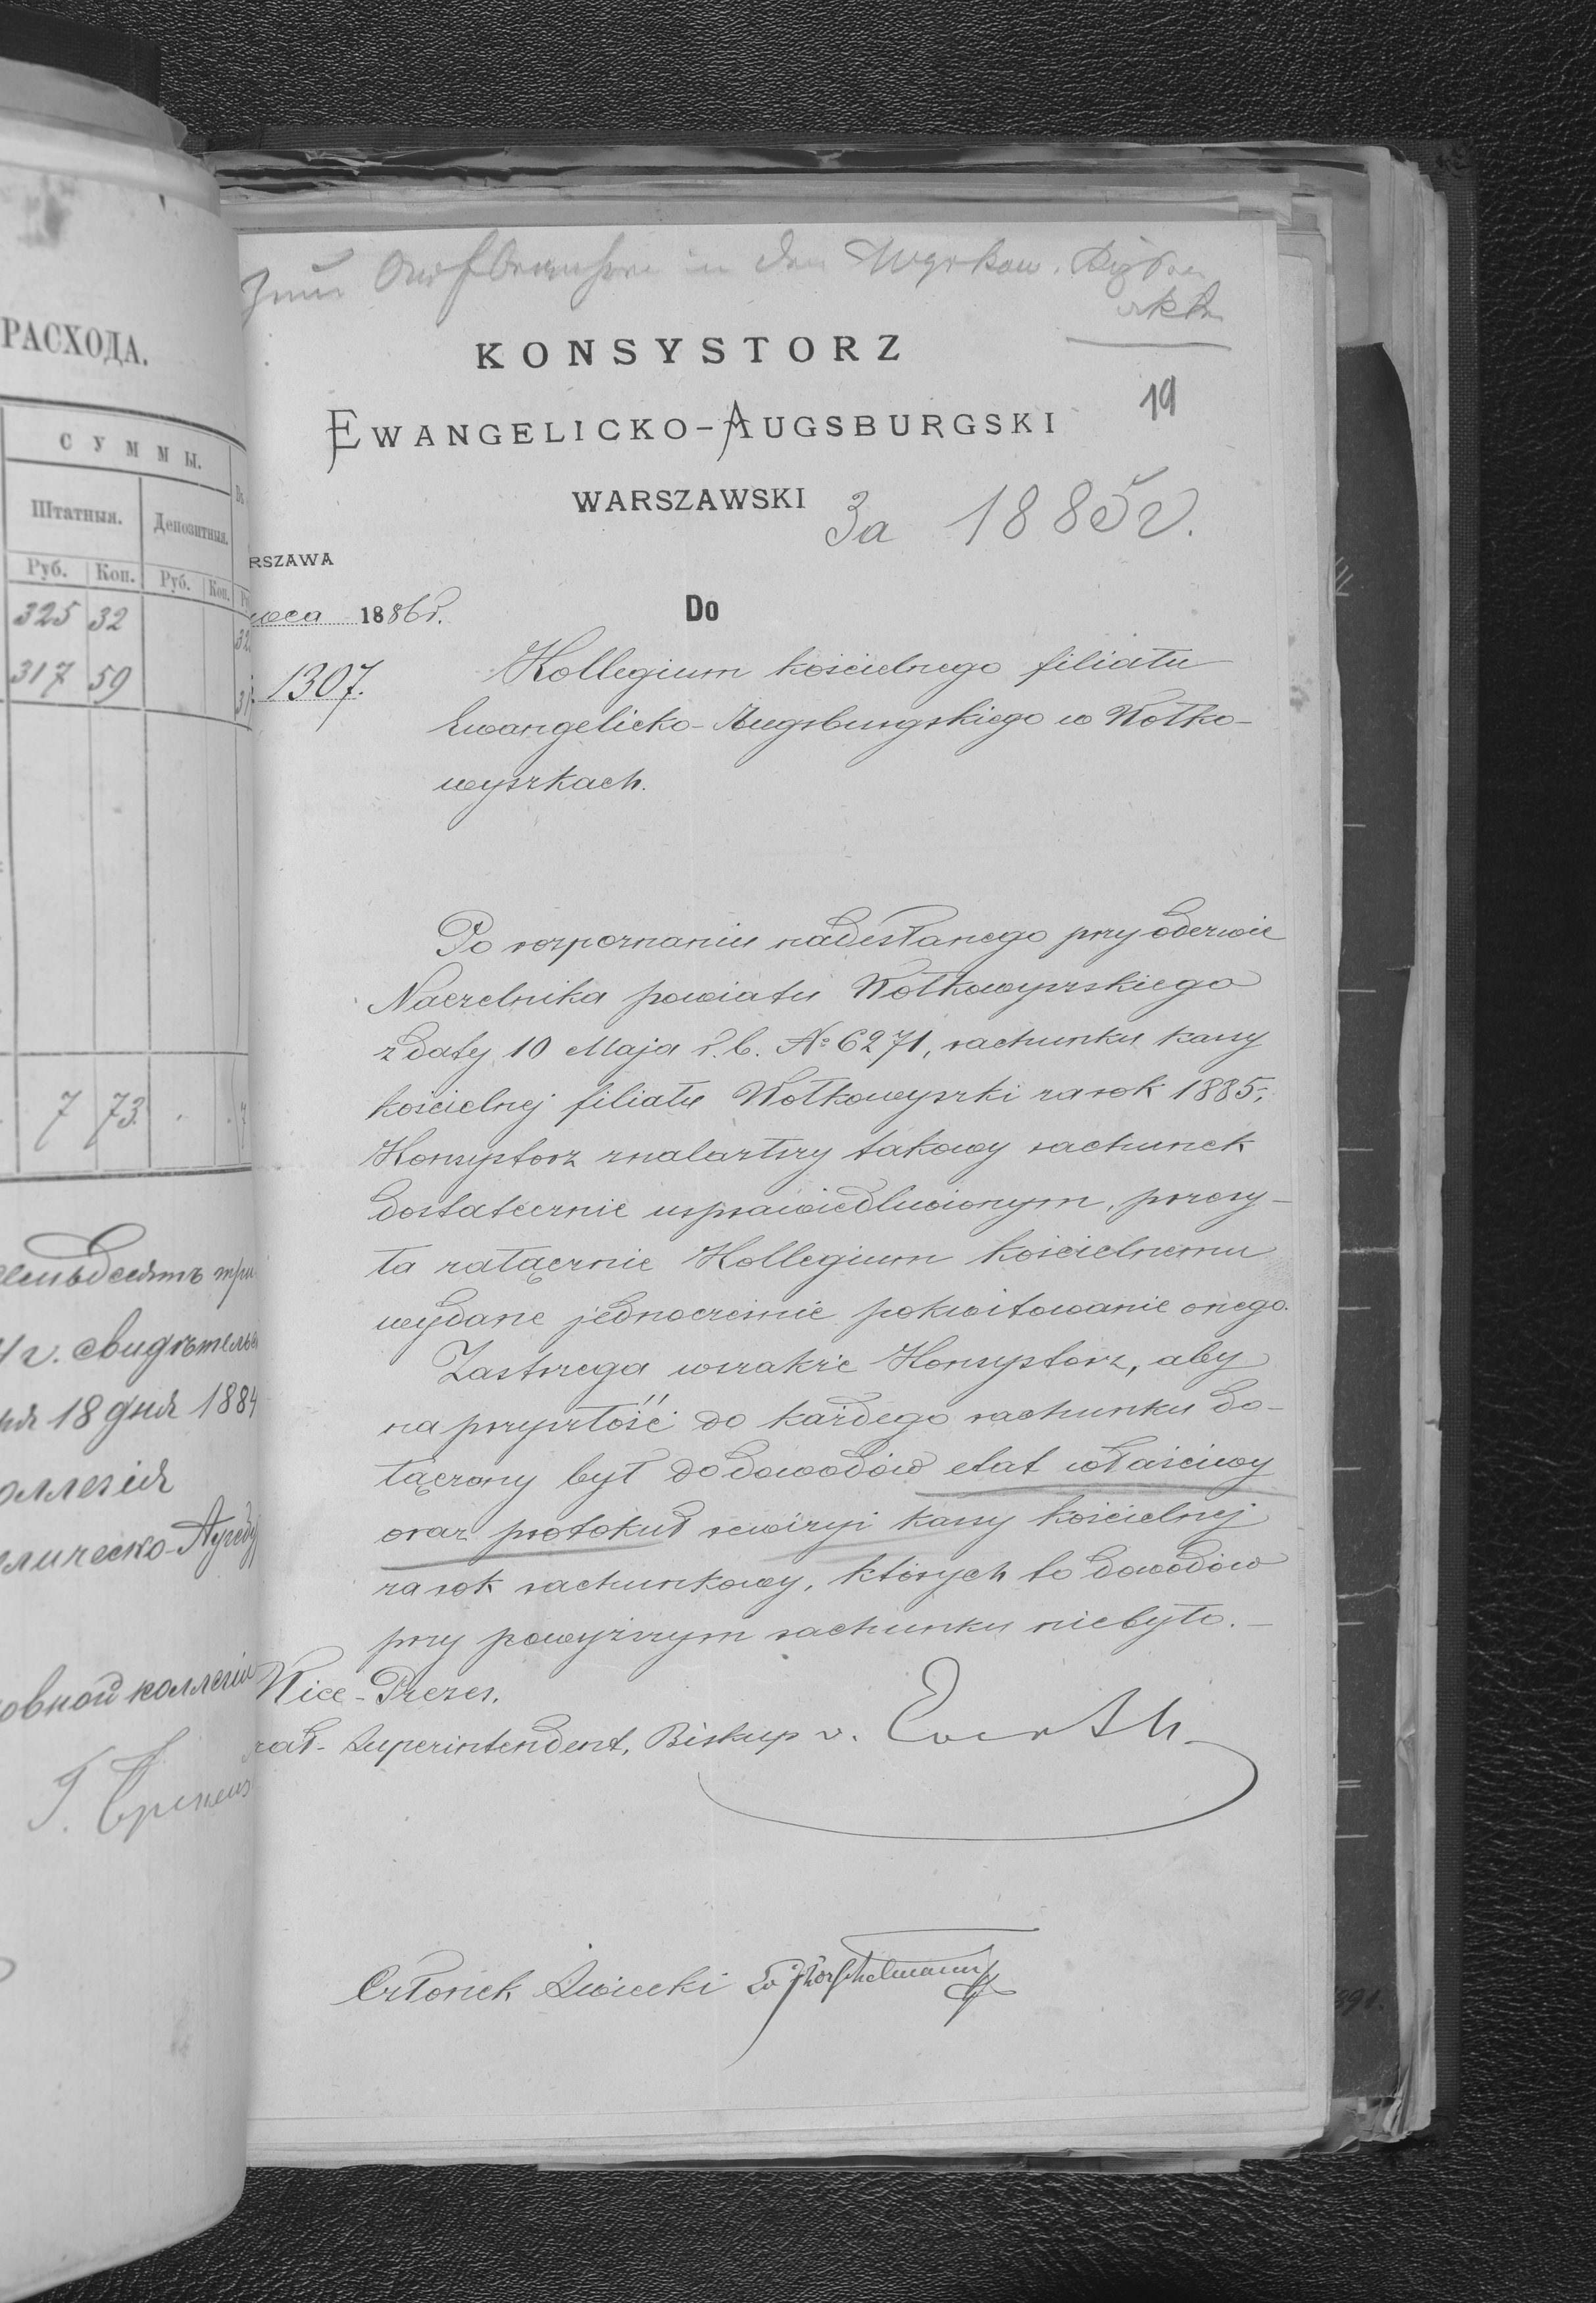 РАСХОДА.
СУММЫ.
Штатныя. Депозитныя.
Руб. Коп. Руб. Коп.
325 32
317 59
7 73
18 дня 1884
zum in den
KONSYSTORZ
19
EWANGELICKO-AUGSBURGSKI
WARSZAWSKI
За 1885г.
RSZAWA
1886 r.
Do
1307.
Kollegium kościelnego filiatu
Ewangelicko-Augsburgskiego w Wołko-
wyszkach.
Po rozpoznaniu nadesłanego przy odezwie
Naczelnika powiatu Wołkowyszskiego
z daty 10 Maja r. b. № 6271, rachunku kassy
kościelnej filiału Wołkowyszki za rok 1885,
Konsystorz znalazłszy takowy rachunek
dostatecznie usprawiedliwionym, przesy-
ła załącznie Kollegium kościelnemu
wydane jednocześnie pokwitowanie onego.
Zastrzega wszakże Konsystorz, aby
na przyszłość do każdego rachunku do-
łączony był do dowodów etat właściwy
oraz protokuł rewizyi kassy kościelnej
za rok rachunkowy, których to dowodów
przy powyższym rachunku niebyło.—
Vice-Prezes,
rał-Superintendent, Biskup v. Everth
Członek Świecki